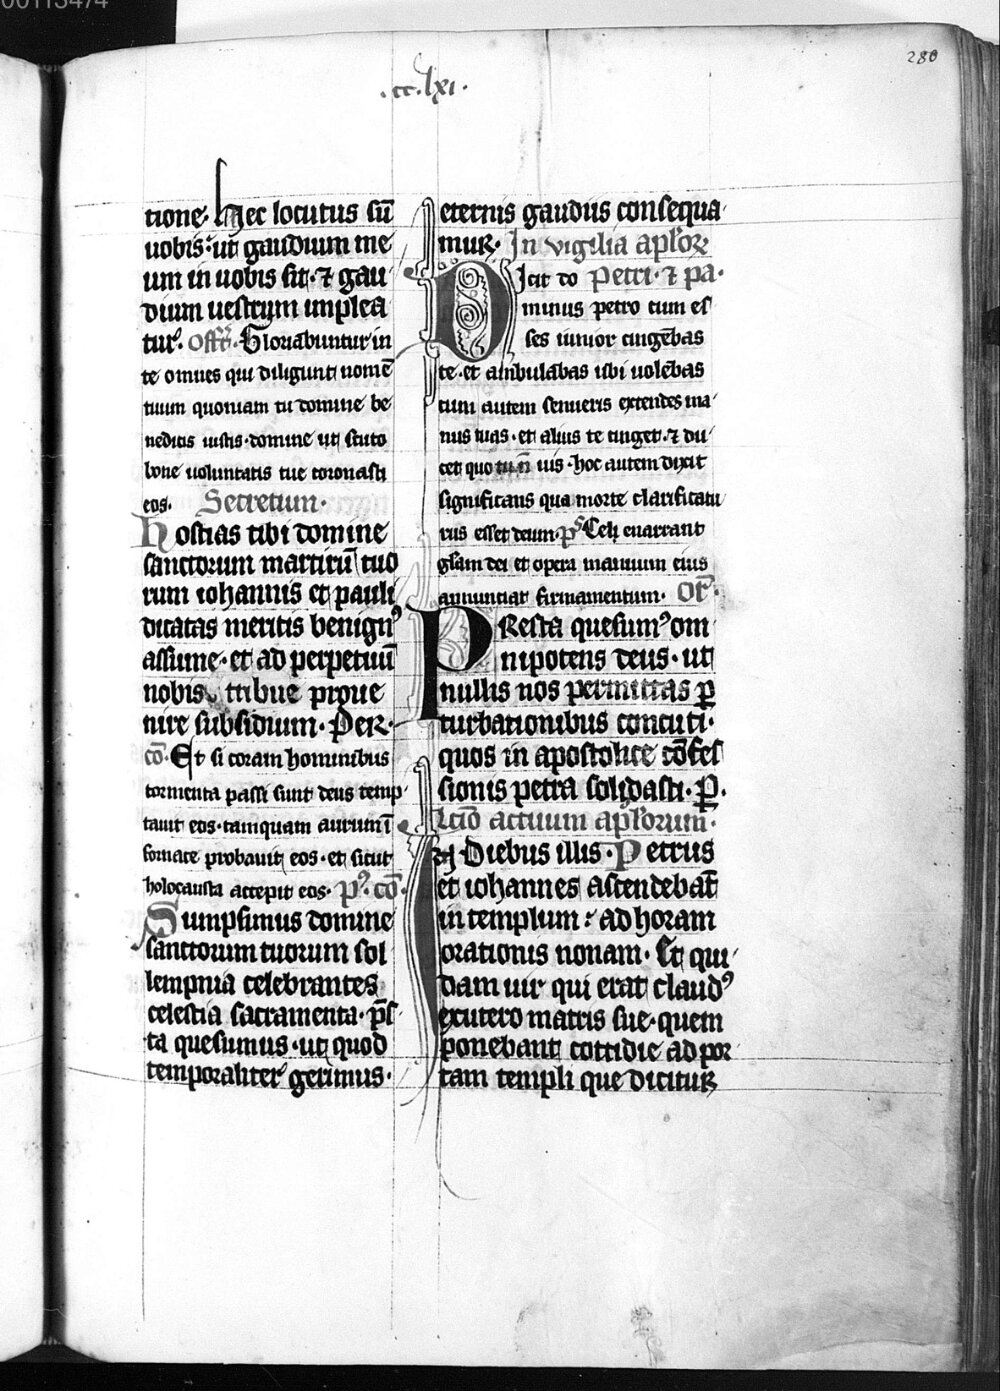 00113474
280
.cc.lxi.
tione. Hec locutus sū
uobis: ut gaudium me
um in uobis sit. ⁊ gau
dium uestrum implea
tur. Offr̄. Gloriabuntur in
te omnes qui diligunt nomē
tuum quoniam tu domine be
nedicis iustis. domine ut scuto
bone uoluntatis tue coronasti
eos. Secretum.
Hostias tibi domine
sanctorum martirū tuo
rum iohannis et pauli
dicatas meritis benignꝰ
assume. et ad perpetuū
nobis tribue proue
nire subsidium. Per.
cō. Et si coram hominibus
tormenta passi sunt deus temp
tauit eos. tamquam aurum ī
fornace probauit eos. et sicut
holocausta accepit eos. pꝰ. cō.
Sumpsimus domine
sanctorum tuorum sol
lempnia celebrantes
celestia sacramenta. p̄s
ta quesumus. ut quod
temporaliter gerimus.
eternis gaudiis consequa
mur. In vigilia aplōr
Dicit do Petri. ⁊ pa.
minus petro cum es
ses iunior cingebas
te. et ambulabas ubi uolebas
cum autem senueris extendes ma
nus tuas. et alius te cinget. ⁊ du
cet quo tu n̄ uis. hoc autem dixit
significans qua morte clarificatu
rus esset deum. ps̄ Celi enarrant
glām dei et opera manuum eius
annuntiat firmamentum. Or̄.
Presta quesumꝰ om
nipotens deus. ut
nullis nos permittas ꝑ
turbationibus concuti.
quos in apostolice cōfes
sionis petra solidasti. P̄.
Lcīo actuum aplōrum.
In Diebus illis. Petrus
et iohannes ascendebāt
in templum: ad horam
orationis nonam. Et qui
dam uir qui erat claudꝰ
ex utero matris sue. quem
ponebant cottidie ad por
tam templi que dicitur